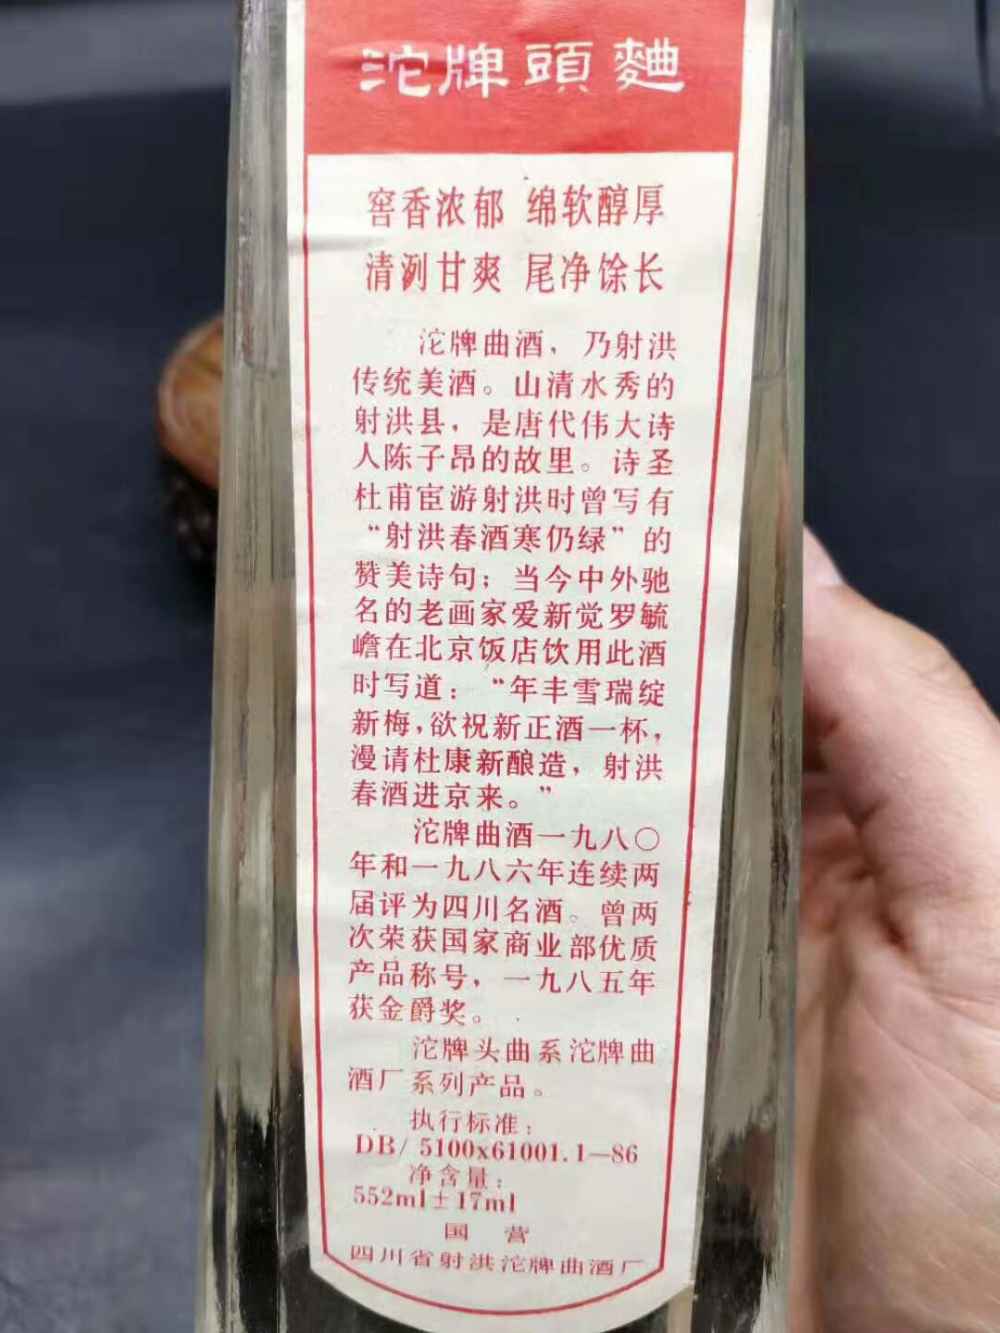 沱牌頭麯
窖香浓郁 绵软醇厚
清冽甘爽 尾净馀长
沱牌曲酒，乃射洪
传统美酒。山清水秀的
射洪县，是唐代伟大诗
人陈子昂的故里。诗圣
杜甫宦游射洪时曾写有
“射洪春酒寒仍绿”的
赞美诗句；当今中外驰
名的老画家爱新觉罗毓
嶦在北京饭店饮用此酒
时写道：“年丰雪瑞绽
新梅，欲祝新正酒一杯，
漫请杜康新酿造，射洪
春酒进京来。”
沱牌曲酒一九八〇
年和一九八六年连续两
届评为四川名酒。曾两
次荣获国家商业部优质
产品称号，一九八五年
获金爵奖。
沱牌头曲系沱牌曲
酒厂系列产品。
执行标准：
DB/5100x61001.1—86
净含量：
552ml±17ml
国营
四川省射洪沱牌曲酒厂